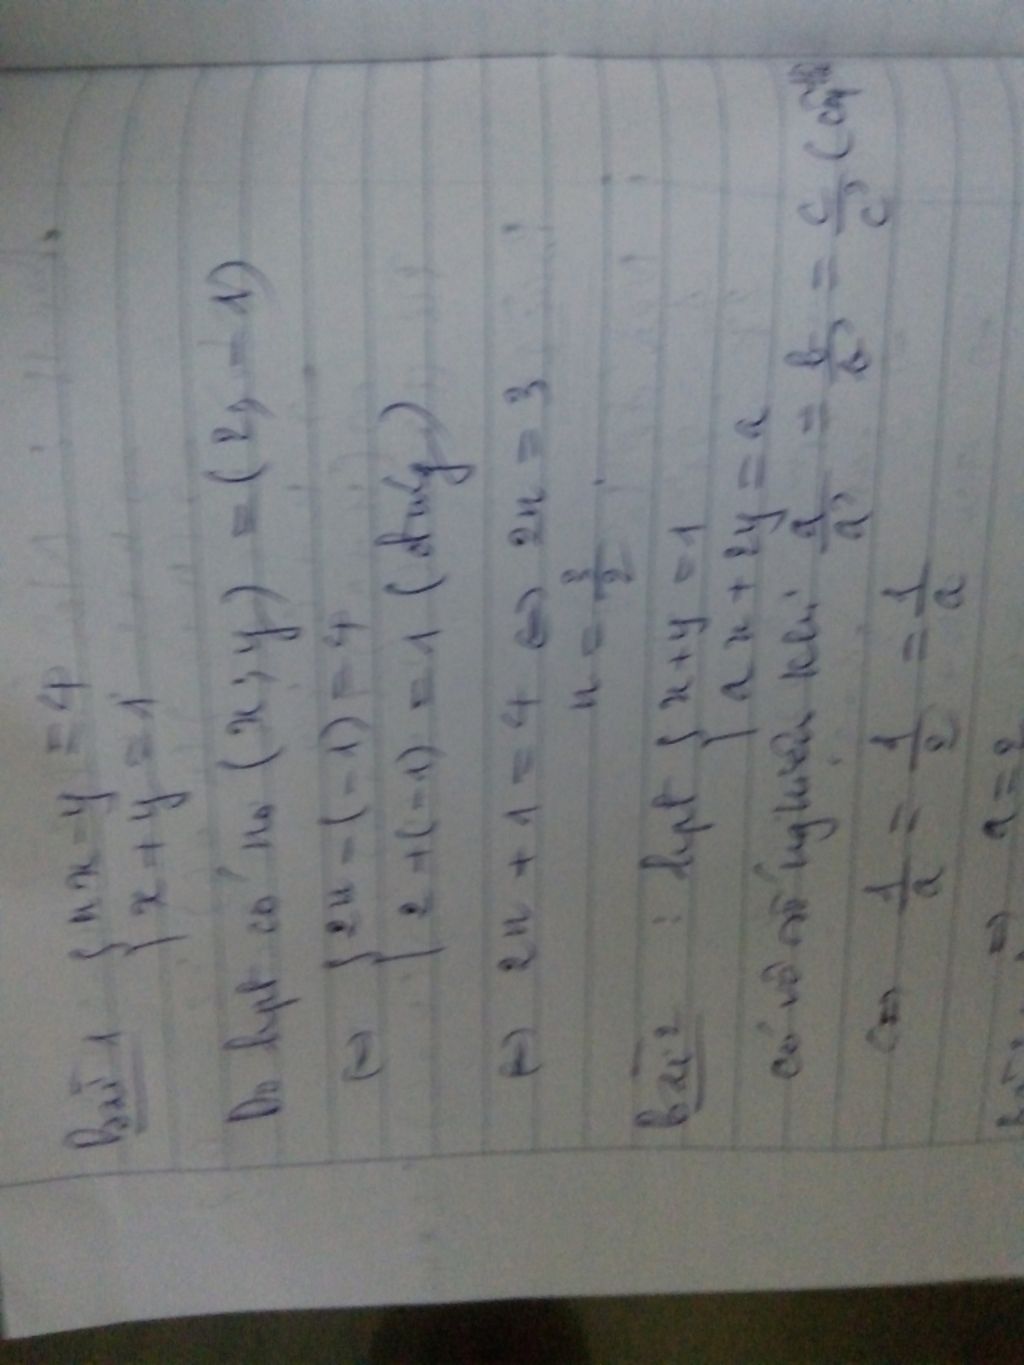 Bài 1 { nx - y = 4
{ x + y = 1
Do hpt có no (x; y) = (2; -1)
(=) { 2n - (-1) = 4
{ 2 + (-1) = 1 (đúng)
(=) 2n + 1 = 4 (=) 2n = 3
n = 3/2
Bài 2 : hpt { x + y = 1
{ ax + 2y = a
có vô số nghiệm khi a/a' = b/b' = c/c'
(=) 1/a = 1/2 = 1/a
=) a = 2